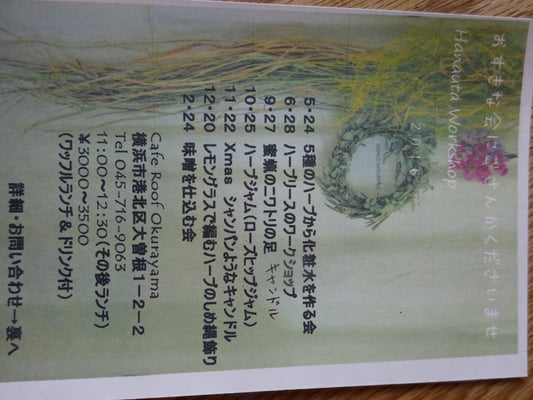 おすきな会にごさんかくださいませ
Hanauta Workshop
2016
5・24 5種のハーブから化粧水を作る会
6・28 ハーブリースのワークショップ
9・27 蜜蝋のニワトリの足 キャンドル
10・25 ハーブジャム(ローズヒップジャム)
11・22 Xmas シャンパンようなキャンドル
12・20 レモングラスで編むハーブのしめ縄飾り
2・24 味噌を仕込む会
Cafe Roof Okurayama
横浜市港北区大曽根1-2-2
Tel 045-716-9063
11:00~12:30(その後ランチ)
¥3000~3500
(ワッフルランチ&ドリンク付)
詳細・お問い合わせ→裏へ